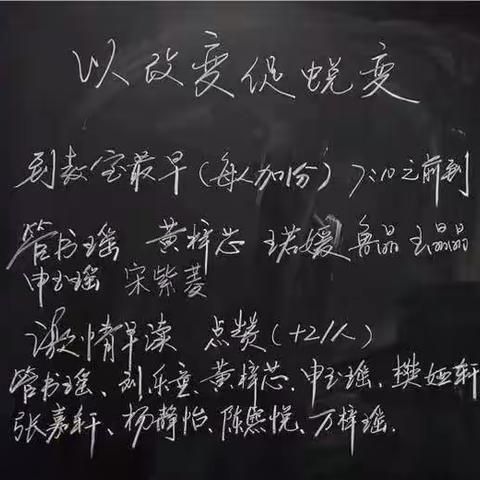 以改变促蜕变
到教室最早(每人加1分) 7:10之前到
管书瑶 黄梓芯 珺媛 鲁晶 王晶晶
申玉瑶 宋紫菱
激情早读 点赞(+2/人)
管书瑶、刘乐童、黄梓芯、申玉瑶、樊娅轩
张嘉轩、杨静怡、陈熙悦、万梓瑶.